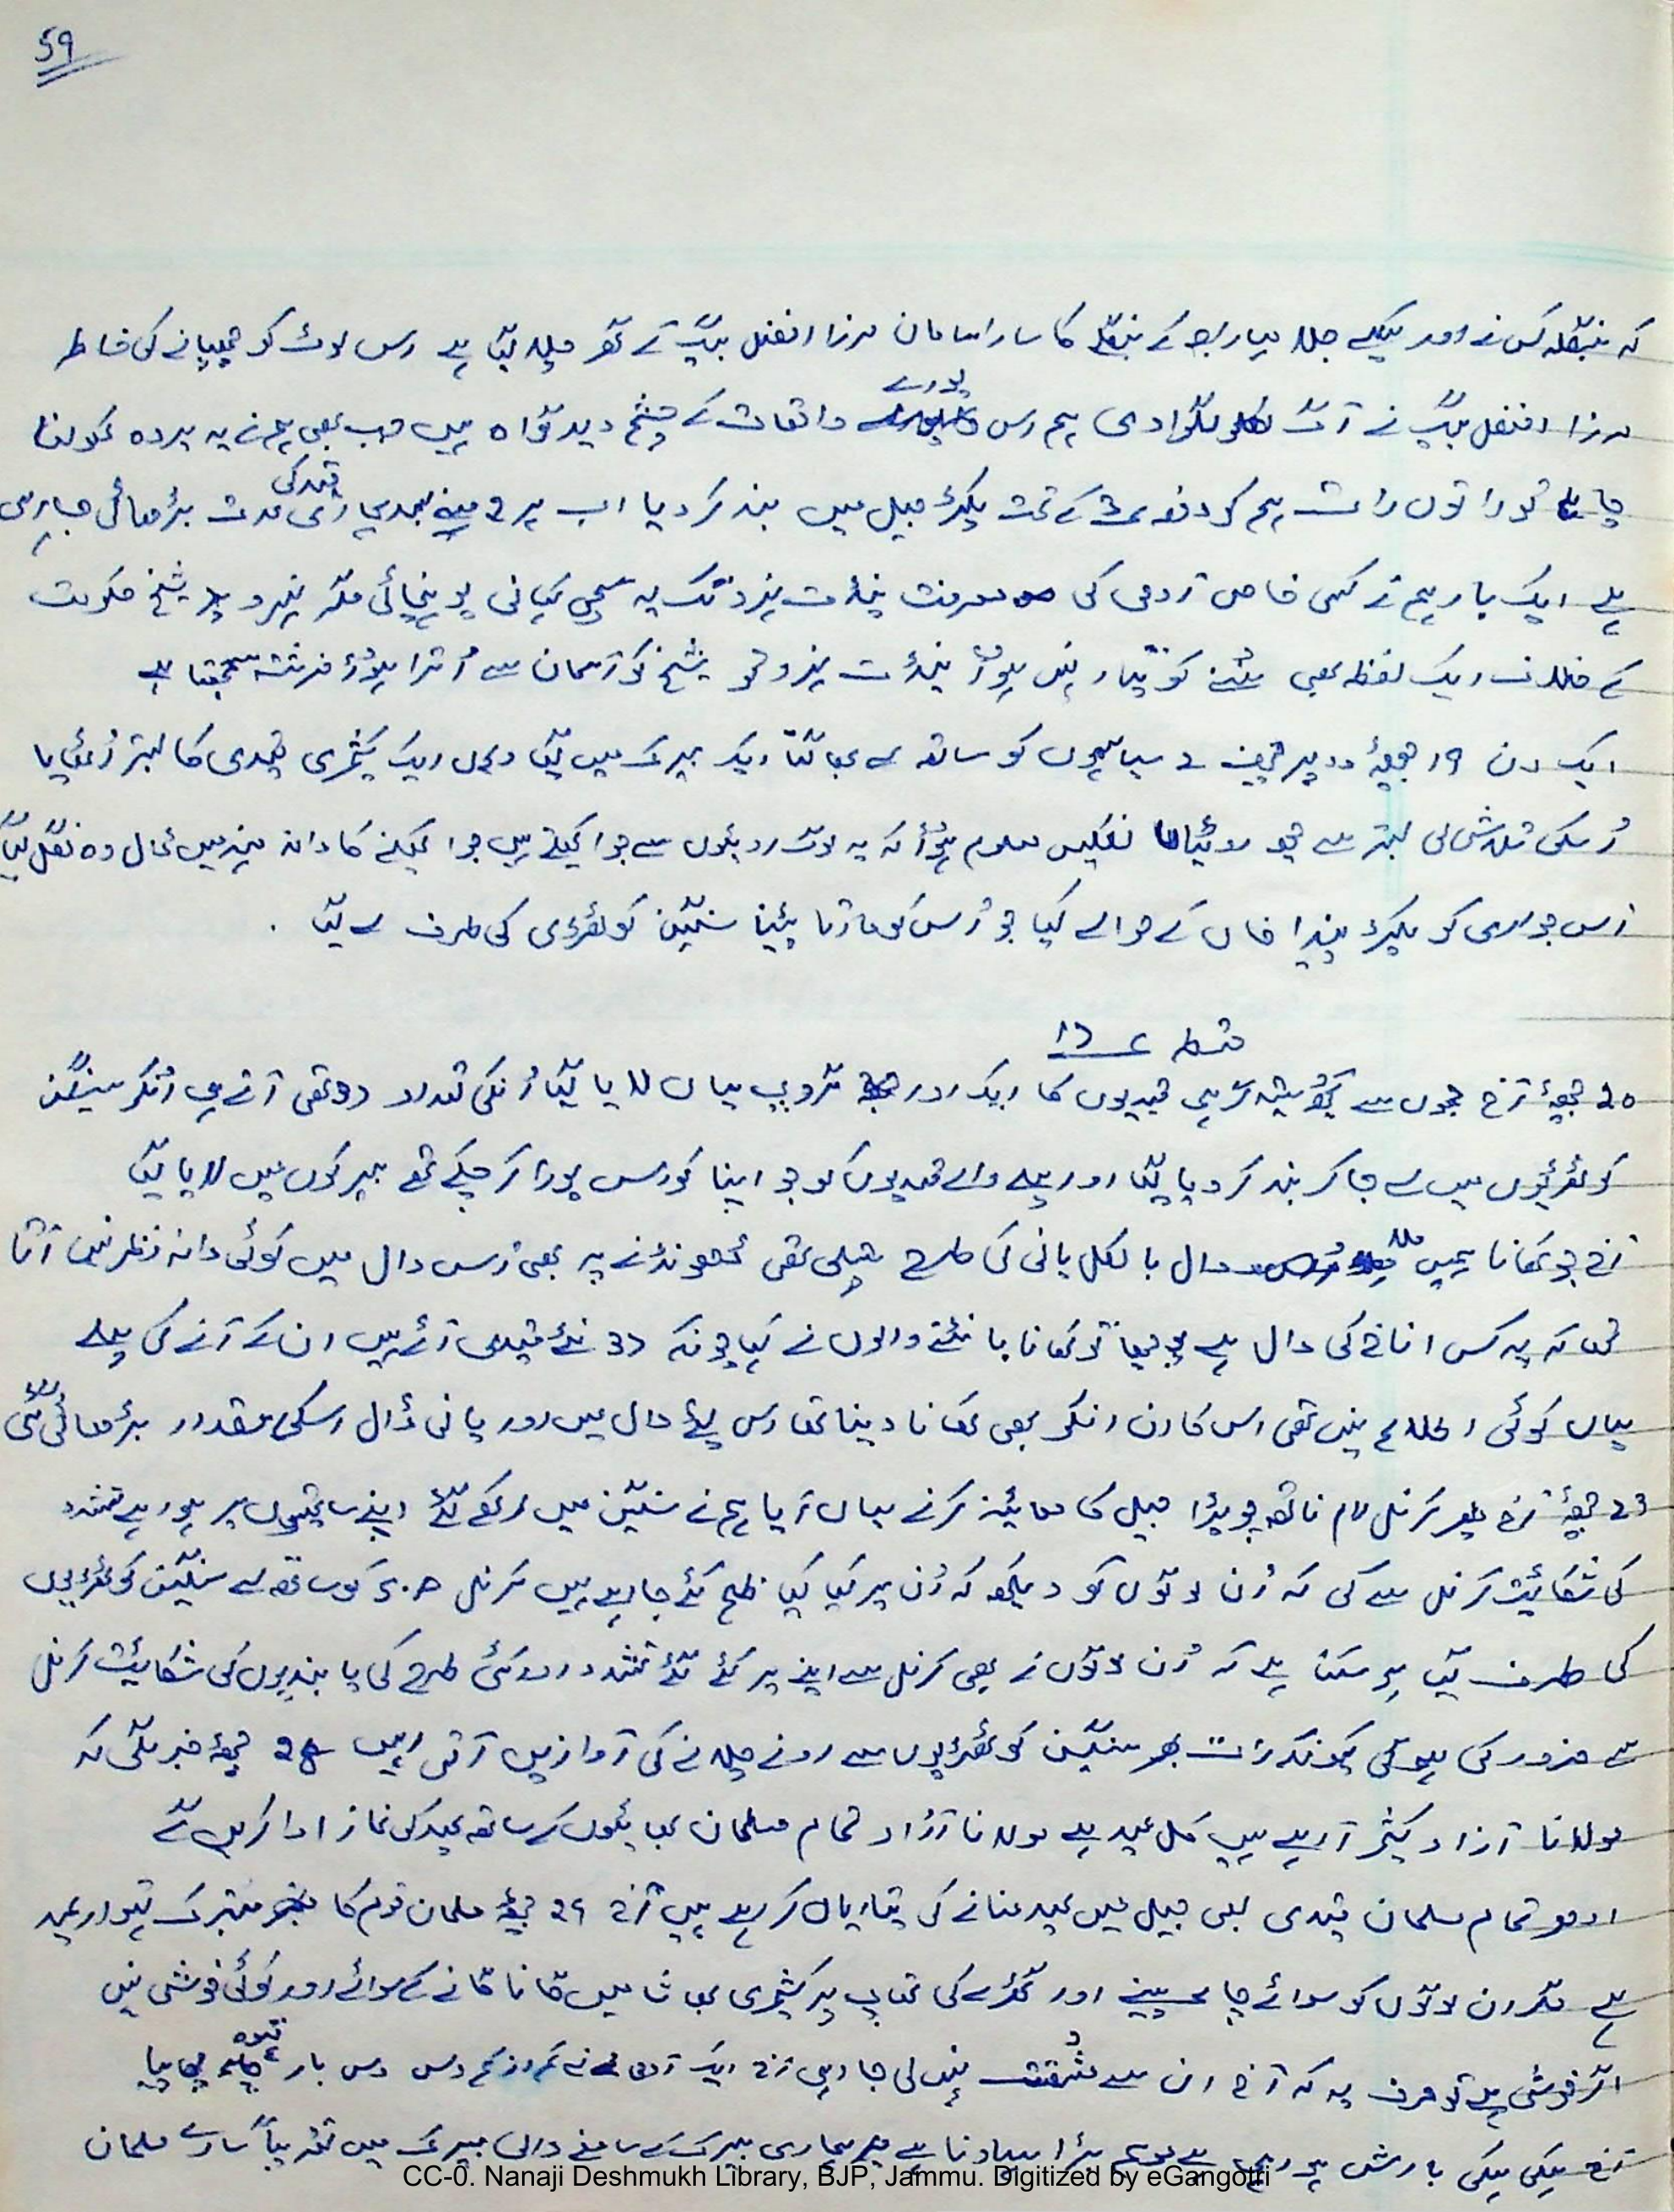 59
کہ بنگلہ کس نے اور کیسے جلا مہاراجہ کے بنگلے کا سارا سامان مرزا افضل بیگ کے گھر چلا گیا ہے اس لوٹ کو چھپانے کی خاطر
مرزا افضل بیگ نے آگ لگوا دی ہم اس پورے واقعات کے چشم دید گواہ ہیں جب بھی ہم نے یہ پردہ کھولنا
چاہا تو راتوں رات ہم کو دفعہ 3 کے تحت پکڑ جیل میں بند کر دیا اب ہر 2 مہینے بعد ہماری قید کی مدت بڑھائی جا رہی
ہے ایک بار ہم نے کسی خاص آدمی کی معرفت پنڈت نہرو تک یہ سچی کہانی پہنچائی مگر نہرو شیخ حکومت
کے خلاف ایک لفظ بھی سُننے کو تیار نہیں ہوُا پنڈت نہرو تو شیخ کو آسمان سے اُترا ہوُا فرشتہ سمجھتا ہے
ایک دن 19 دوپہر چیف 2 سپاہیوں کو ساتھ لے بھاگتا ایک بیرک میں گیا وہاں ایک کشمیری قیدی کا بستر اُٹھایا
اُسکی تلاشی لی بستر سے کچھ نکلیں معلوم ہوُا کہ یہ لوگ روٹیوں سے جوا کھیلتے ہیں جوا کھیلنے کا دانہ منہ میں ڈال وہ نگل گیا
اُس جواری کو پکڑ خاں کے حوالے کیا جو اُس کو مارتا پیٹتا سنگین کوٹھڑی کی طرف لے گیا .
قسط ؏ 15
20 آج جموں سے کچھ ستیہ گرہی قیدیوں کا ایک اور گروپ یہاں لایا گیا اُنکی تعداد 30 تھی آتے ہی اُنکو سنگین
کوٹھڑیوں میں لے جا کر بند کر دیا گیا اور پہلے والے قیدیوں کو جو اپنا کورس پورا کر چکے تھے بیرکوں میں لایا گیا
آج جو کھانا ہمیں ملا دال بالکل پانی کی طرح پتلی تھی ڈھونڈنے پہ بھی اُس دال میں کوئی دانہ نظر نہیں آتا
تھا کہ یہ کس اناج کی دال ہے پوچھا تو کھانا بانٹنے والوں نے کہا چونکہ 30 نئے قیدی آئے ہیں ان کے آنے کی پہلے
یہاں کوئی اطلاع نہیں تھی اس کارن انکو بھی کھانا دینا تھا اس لئے دال میں اور پانی ڈال اسکی مقدار بڑھائی گئی ہے
23 آج پھر کرنل رام ناتھ چوپڑا جیل کا معائینہ کرنے یہاں آیا ہم نے سنگین میں رکھے گئے اپنے ساتھیوں پر ہو رہے تشدد
کی شکائیت کرنل سے کی کہ اُن لوگوں کو دیکھو کہ اُن پر کیا کیا ظلم کئے جا رہے ہیں کرنل کو ساتھ لے سنگین کوٹھڑیوں
کی طرف گیا ہو سکتا ہے کہ اُن لوگوں نے بھی کرنل سے اپنے پر کئے گئے تشدد اور کئی طرح کی پابندیوں کی شکائیت کرنل
سے ضرور کی ہو گی کیونکہ رات بھر سنگین کوٹھڑیوں سے رونے چلانے کی آوازیں آتی رہیں 28 خبر ملی کہ
مولانا آزاد کشمیر آ رہے ہیں کل عید ہے مولانا آزاد تمام مسلمان بھائیوں کے ساتھ عید کی نماز ادا کریں گے
ادھر تمام مسلمان قیدی بھی جیل میں عید منانے کی تیاریاں کر رہے ہیں آج 29 مسلمان قوم کا متبرک تہوار عید
ہے مگر ان لوگوں کو سوائے چائے پینے اور گھڑے کی تھاپ پر کشمیری بھاشا میں گانا گانے کے سوائے اور کوئی خوشی نہیں
اگر خوشی ہے تو صرف یہ کہ آج ان سے مُشقت نہیں لی جا رہی آج ایک آدمی نے کم از کم دس دس بار قہوہ پیا
آج ہلکی ہلکی بارش ہو رہی ہے موسم بڑا سہاونا ہے ہماری بیرک کے سامنے والی بیرک میں تقریباً سارے مسلمان
CC-0. Nanaji Deshmukh Library, BJP, Jammu. Digitized by eGangotri